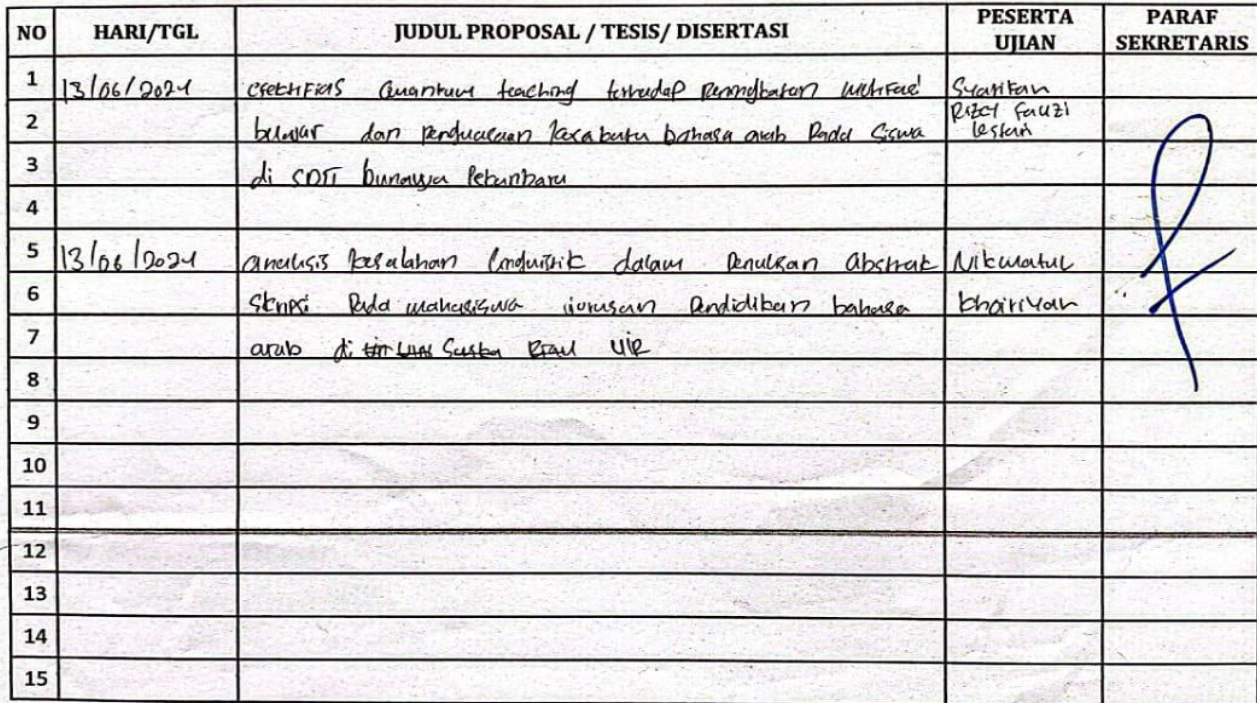 NO HARI/TGL JUDUL PROPOSAL / TESIS/ DISERTASI PESERTA UJIAN PARAF SEKRETARIS
1 13/06/2024 efektifias Quantum teaching terhadap peningkatan Syarifan
2 belajar dan penguasaan kosa bahasa arab Pada Siswa Rizcy Fauzi lestari
3 di SDIT bunayya Pekanbaru
4
5 13/06/2024 analisis kesalahan linguistik dalam penulisan abstrak Nikmatul
6 skripsi Pada mahasiswa jurusan Pendidikan bahasa khairiyah
7 arab di Suska Riau UIR
8
9
10
11
12
13
14
15